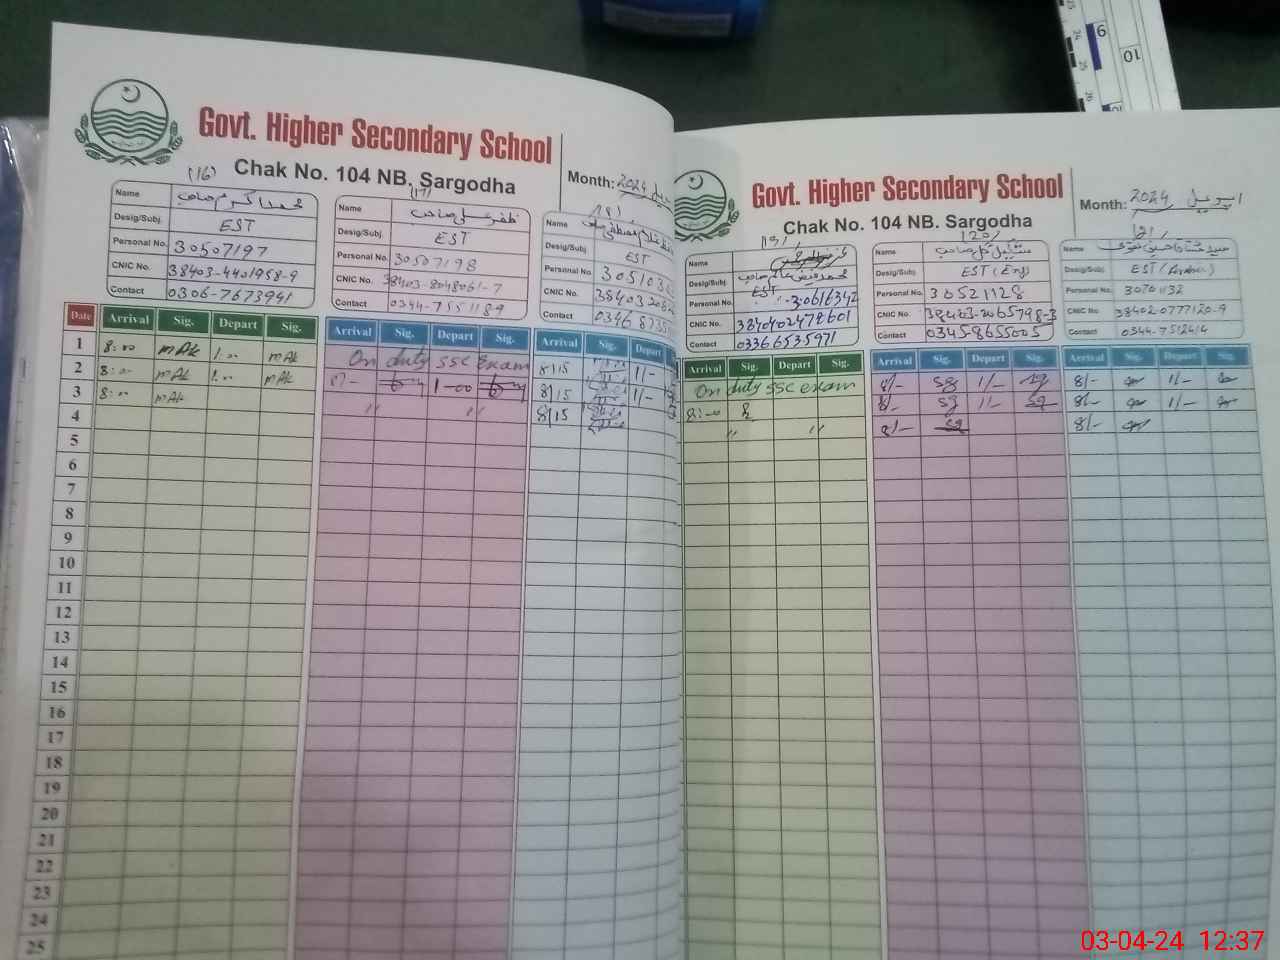 Govt. Higher Secondary School
Chak No. 104 NB. Sargodha
Month: اپریل 2024
(16)
Name محمد اکرم صاحب
Desig/Subj. EST
Personal No. 30507197
CNIC No. 38403-4401958-9
Contact 0306-7673941
(17)
Name
Desig/Subj. EST
Personal No. 30507198
CNIC No. 38403-8048061-7
Contact 0344-7551189
(18)
Name
Desig/Subj. EST
Personal No.
CNIC No.
Contact
Date Arrival Sig. Depart Sig. Arrival Sig. Depart Sig. Arrival Sig. Depart
1 8:00 mAk 1:00 mAk On duty SSC Exam 8/15 1/-
2 8:00 mAk 1:00 mAk 8/- 1-00 8/15 1/-
3 8:00 mAk " " 8/15
4
5
6
7
8
9
10
11
12
13
14
15
16
17
18
19
20
21
22
23
24
25
Govt. Higher Secondary School
Chak No. 104 NB. Sargodha
Month: اپریل 2024
(19)
Name
Desig/Subj. EST
Personal No. 30616342
CNIC No. 3840402478601
Contact 03366535971
(20)
Name
Desig/Subj. EST (Eng)
Personal No. 30521128
CNIC No. 38403-2065798-3
Contact 0345-8655005
(21)
Name
Desig/Subj. EST (Arabic)
Personal No.
CNIC No. 38402-0777120-9
Contact 0344-7512614
Arrival Sig. Depart Sig. Arrival Sig. Depart Sig. Arrival Sig. Depart Sig.
On duty SSC exam 8/- Sg 1/- Sg 8/- 1/-
8:00 8/- Sg 1/- Sg 8/- 1/-
" " 8/- Sg 8/-
03-04-24 12:37